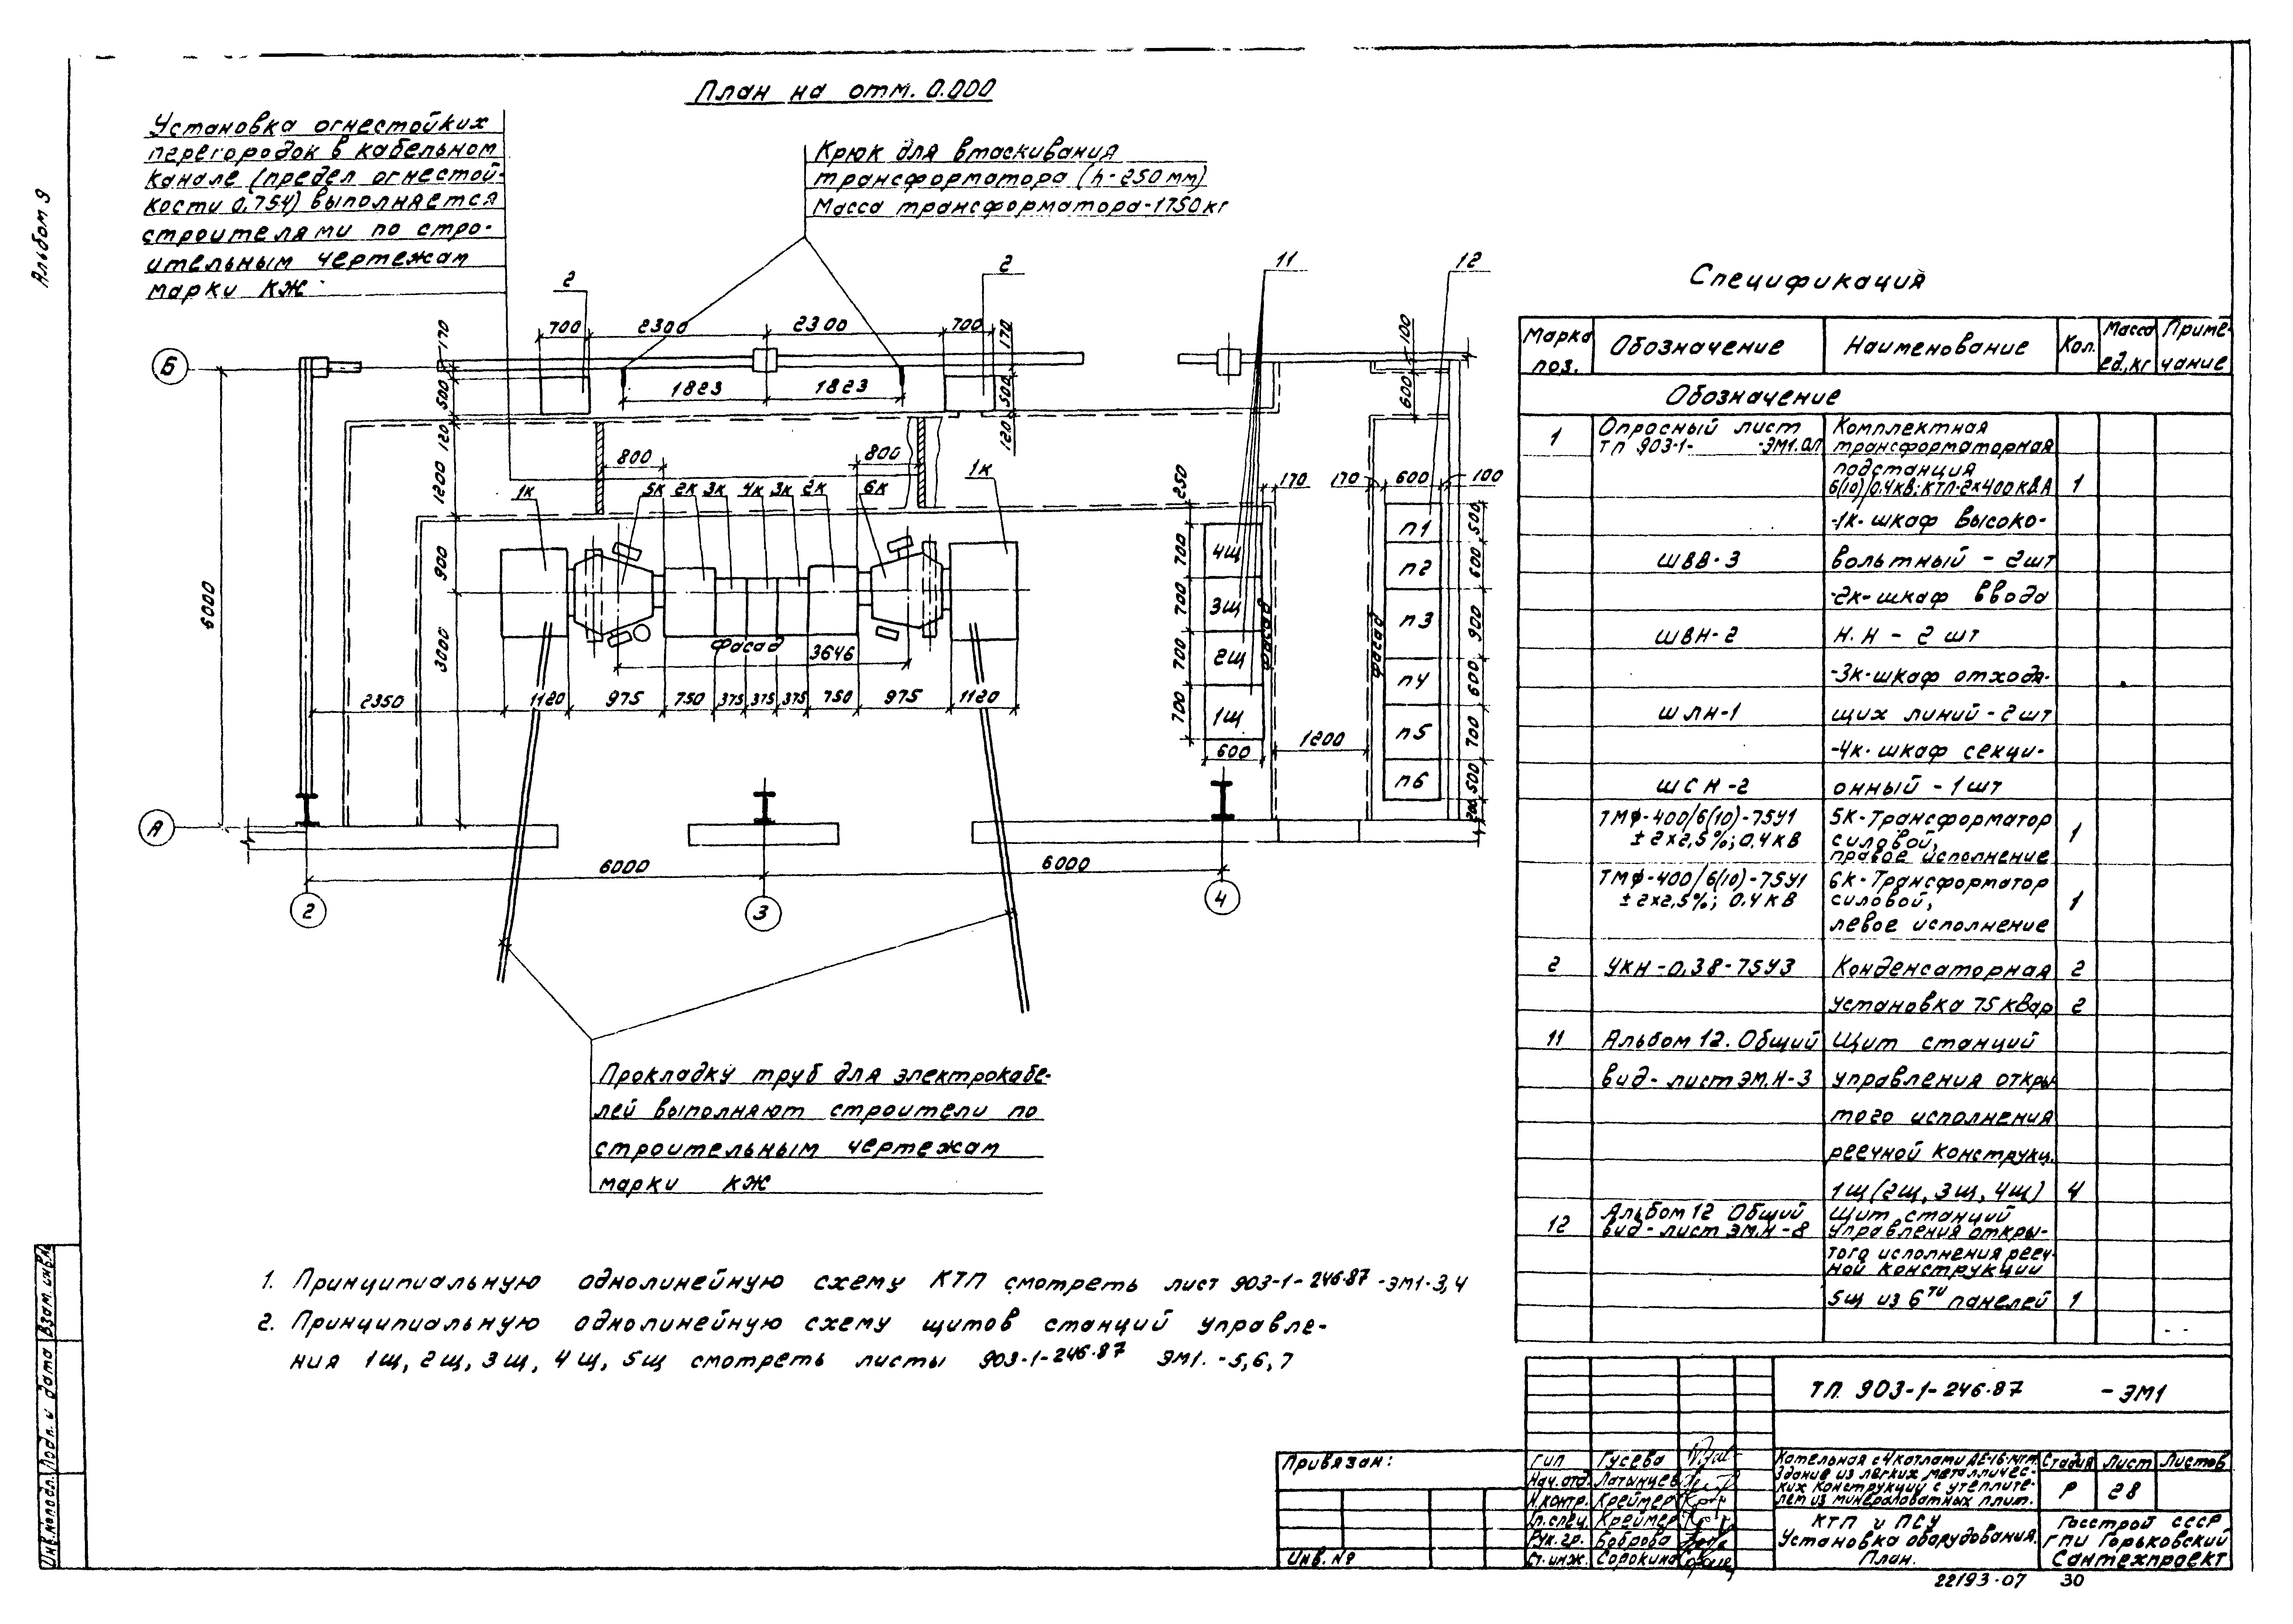 Альбом 9
План на отм. 0.000
Установка огнестойких
перегородок в кабельном
канале (предел огнестой-
кости 0,75ч) выполняется
строителями по стро-
ительным чертежам
марки КЖ
Крюк для втаскивания
трансформатора (h-250мм)
Масса трансформатора-1750кг
2
2
11
12
700
2300
2300
700
170
170
100
Б
1823
1823
500
500
600
120
120
800
800
1200
1к
5к
2к
3к
4к
3к
2к
6к
1к
250
170
170
600
100
900
3000
6000
Фасад
3646
2350
1120
975
750
375
375
375
750
975
1120
700
700
700
700
4щ
3щ
2щ
1щ
600
Фасад
1200
Фасад
п1
п2
п3
п4
п5
п6
500
600
900
600
700
500
200
А
6000
6000
2
3
4
Прокладку труб для электрокабе-
лей выполняют строители по
строительным чертежам
марки КЖ
1. Принципиальную однолинейную схему КТП смотреть лист 903-1-246.87 -ЭМ1-3,4
2. Принципиальную однолинейную схему щитов станций управле-
ния 1щ, 2щ, 3щ, 4щ, 5щ смотреть листы 903-1-246.87 ЭМ1. -5,6,7
Спецификация
Марка поз. Обозначение Наименование Кол. Масса ед.,кг Приме-чание
Обозначение
1 Опросный лист Комплектная
ТП 903-1- -ЭМ1.ОЛ трансформаторная
подстанция
6(10)/0.4кВ; КТП-2х400кВА 1
-1к- шкаф высоко-
ШВВ-3 вольтный - 2шт
-2к- шкаф ввода
ШВН-2 Н.Н - 2 шт
-3к-шкаф отходя-
ШЛН-1 щих линий - 2шт
-4к- шкаф секци-
ШСН-2 онный - 1шт
ТМФ-400/6(10)-75У1 5К-Трансформатор
±2х2,5%; 0.4кВ силовой, 1
правое исполнение
ТМФ-400/6(10)-75У1 6К-Трансформатор
±2х2,5%; 0.4кВ силовой, 1
левое исполнение
2 УКН-0,38-75У3 Конденсаторная 2
установка 75 квар 2
11 Альбом 12. Общий Щит станций
вид-лист ЭМ.Н-3 управления откры
того исполнения
реечной конструкц.
1щ (2щ, 3щ, 4щ) 4
Альбом 12 Общий Щит станций
12 вид-лист ЭМ.Н-8 управления откры-
того исполнения рееч-
ной конструкции
5щ из 6ти панелей 1
ТП. 903-1-246.87 -ЭМ1
Привязан:
Инв. №
ГИП Гусева
Нач.отд. Латынцев
Н.контр. Креймер
Гл.спец. Креймер
Рук.гр. Боброва
Ст.инж. Сорокина
Котельная с 4 котлами ДЕ-16-14ГМ.
Здание из легких металличес-
ких конструкций с утеплите-
лем из минераловатных плит.
Стадия Лист Листов
Р 28
КТП и ПСУ
Установка оборудования.
План.
Госстрой СССР
ГПИ Горьковский
Сантехпроект
22193-07 30
Инв.№ подл. Подп. и дата Взам. инв.№